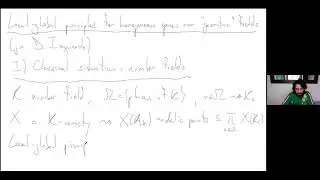 Local-global principles for homogeneous spaces over "geometric" fields
(jt D. Izquierdo)
I) Classical situation : number fields
K number field, Ω = {places of K}, v∈Ω ⇝ Kᵥ
X a K-variety ⇝ X(A_K) adelic points ⊆ ∏ X(Kᵥ)
v∈Ω
Local-global princip